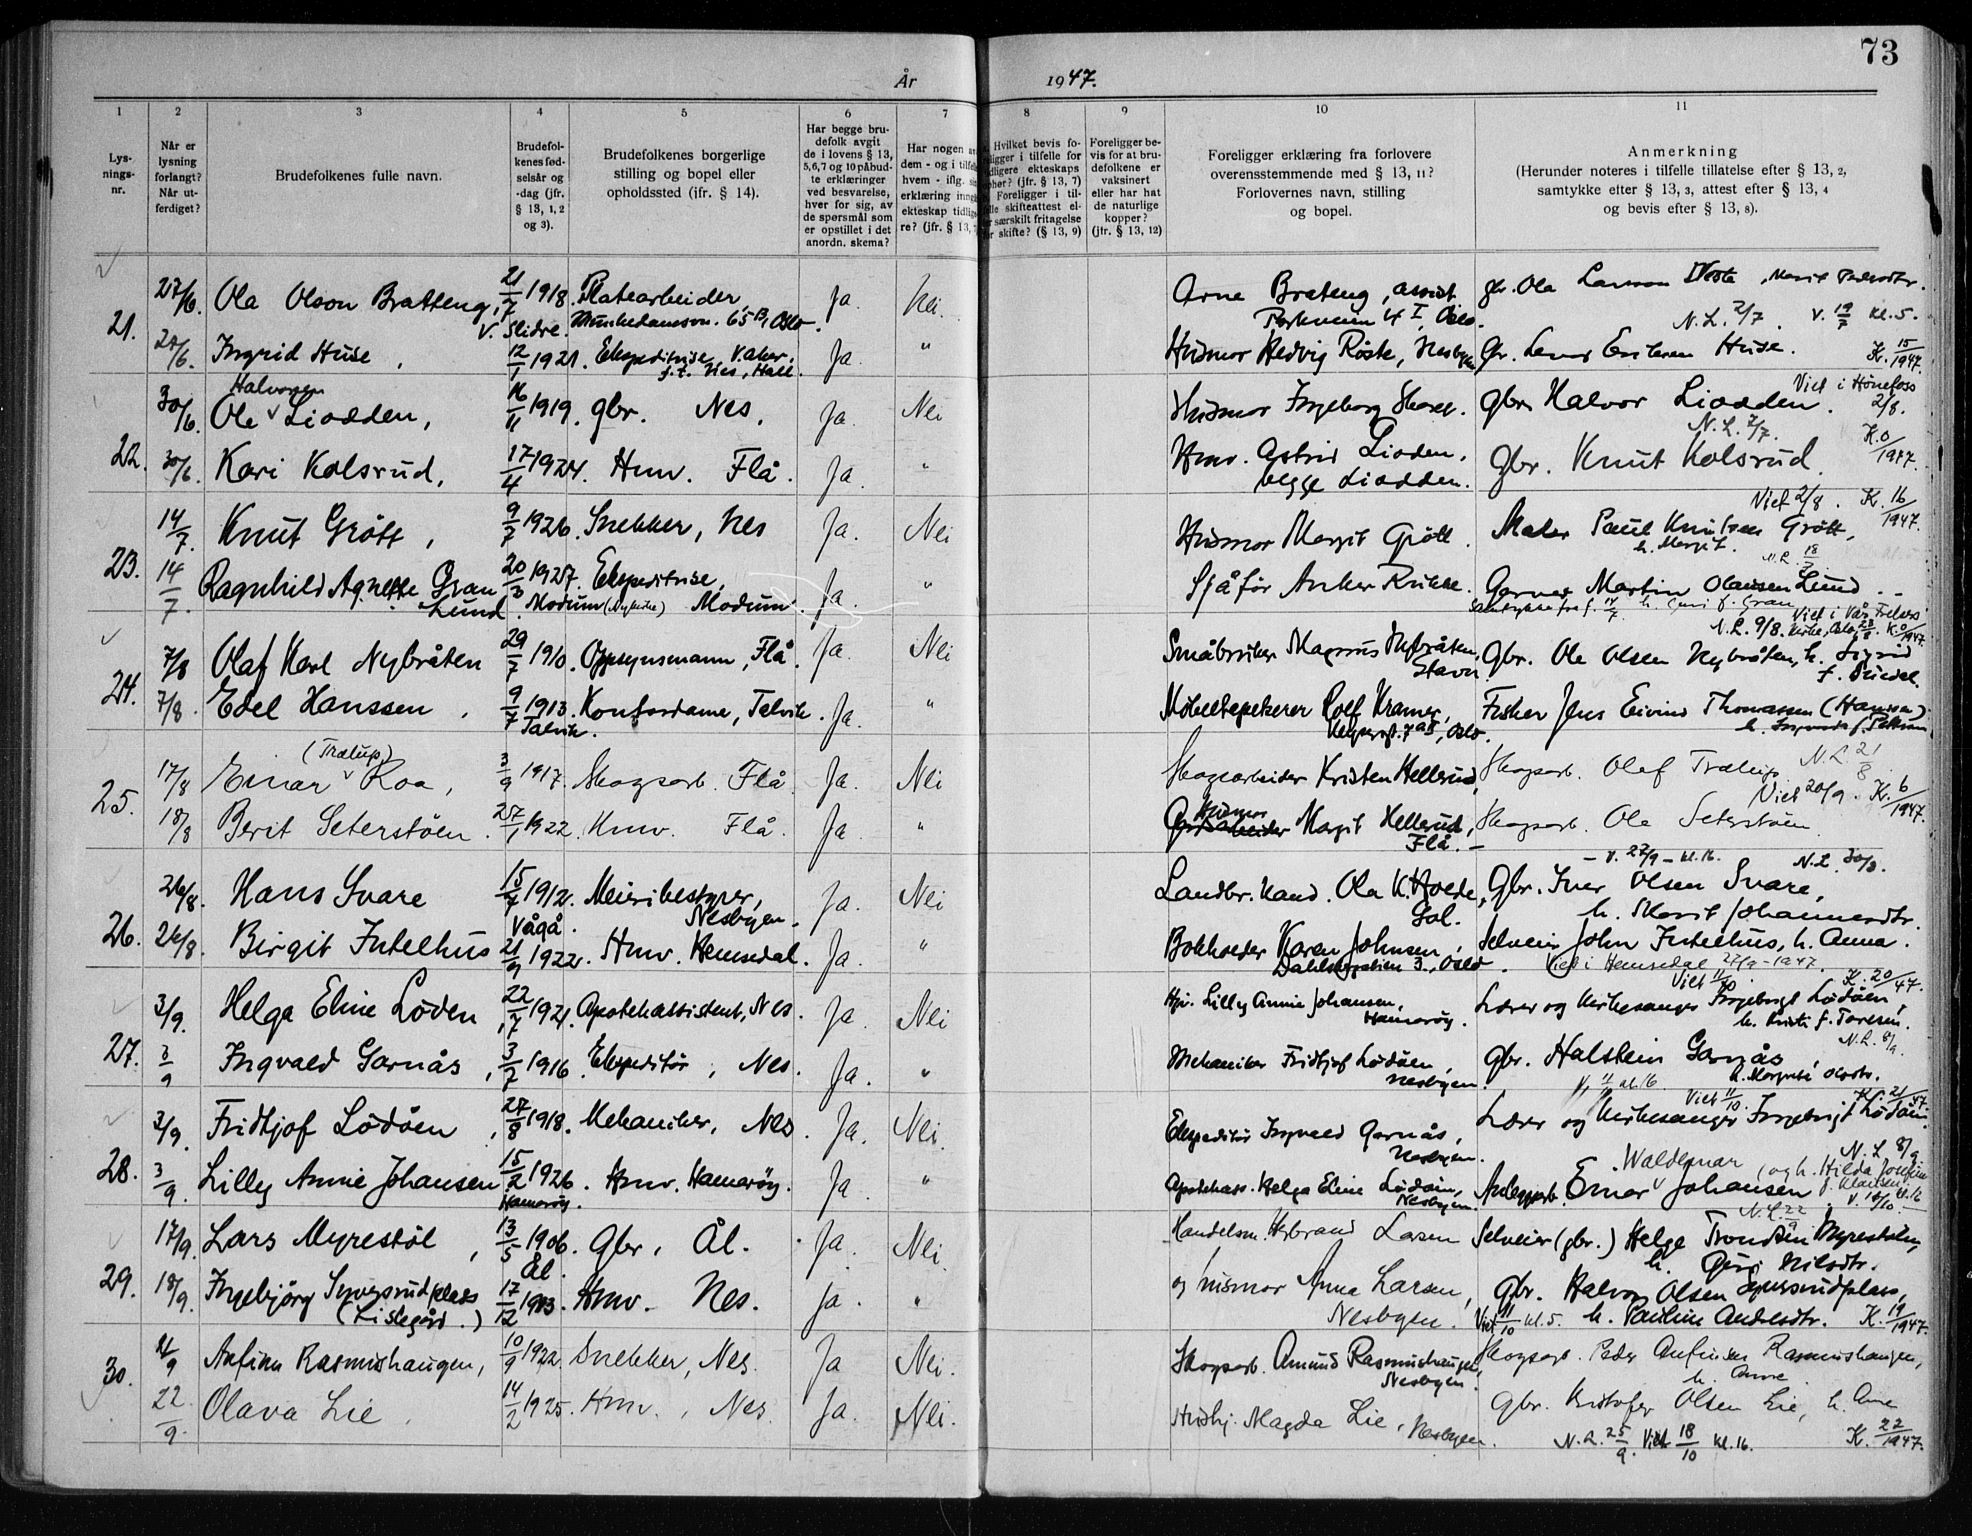 73
År 1947.
1 2 3 4 5 6 7 8 9 10 11
Lysningsnr.
Når er lysning forlangt? Når utferdiget?
Brudefolkenes fulle navn.
Brudefolkenes fødselsår og -dag (jfr. § 13, 1, 2 og 3).
Brudefolkenes borgerlige stilling og bopel eller opholdssted (ifr. § 14).
Har begge brudefolk avgit de i lovens § 13, 5, 6, 7 og 10 påbudte erklæringer ved besvarelse, hver for sig, av de spørsmål som er opstillet i det anordn. skema?
Foreligger bevis for at brudefolkene er vaksinert eller har hat de naturlige kopper? (jfr. § 13, 12)
Foreligger erklæring fra forlovere overensstemmende med § 13, 11? Forlovernes navn, stilling og bopel.
Anmerkning
(Herunder noteres i tilfelle tillatelse efter § 13, 2, samtykke efter § 13, 3, attest efter § 13, 4 og bevis efter § 13, 8).
21. 27/6. Ola Olson Bratteng, 21/7 1918. Platearbeider, Ja. Nei. Arne Brateng, assist. gbr. Ola Larsson
V. Slidre. 65 B, Oslo. Oslo. N.L. 2/7. V. 19/7 kl. 5.
27/6. Ingrid Huse, 12/1 1921. Ekspeditrise, V. Aker. Ja. " Husmor Hedvig Röste, Nesbyen Gbr. Huse. K. 15/1947.
f.t. Nes, Hall.
22. 30/6. Ole Halvorsen Liodden, 16/11 1919. gbr. Nes. Ja. Nei Husmor Ingeborg gbr. Halvor Liodden. Viet i Hönefoss 2/8.
N.L. 2/7.
30/6. Kari Kolsrud, 17/4 1924. Hmv. Flå. Ja. " Hmv. Astrid Liodden, gbr. Knut Kolsrud. K. 0/1947.
begge Liodden.
Viet 2/8. K. 16/1947.
23. 14/7. Knut Grött, 9/7 1926. Snekker, Nes Ja. Nei Husmor Margit Grött. Maler Paul Knutsen Grött,
h. Margit. N.L. 18/7
14/7. Ragnhild Agnethe Gran Lund. 20/3 1927. Ekspeditrise, Modum. Ja. " Sjåför Anker Martin Olausen Lund
Modum (Nykirke)
Viet i Vår Frelsers Kirke, Oslo, 23/8. K. 0/1947.
N.L. 9/8.
24. 7/8 Olaf Karl Nybråten 29/7 1910. Oppsynsmann, Flå. Ja. Nei Småbruker Magnus Nybråten, Stavn. Gbr. Ole Olsen Nybråten, h. Sigrid
7/8. Edel Hanssen, 9/7 1913. Kontordame, Talvik. Ja. " Möbeltapetserer Rolf Kramer, Oslo. Fisker Jens Eivind Thomassen (Hanssen)
Talvik.
25. 17/8 Einar (Trælup) Roa, 3/9 1917. Skogsarb. Flå. Ja. Nei Skogsarbeider Kristen Hellerud, Skogsarb. Olaf Trælup N.L. 21/8
Viet 20/9. K. 6/1947.
18/8 Berit Seterstöen. 27/1 1922. Hmv. Flå. Ja. " Husmor Margit Hellerud, Flå. Skogsarb. Ole Seterstöen
V. 27/9 kl. 16. N.L. 30/8.
26. 26/8. Hans Svare 15/7 1912. Meieribestyrer, Nesbyen. Ja. Nei Landbr. kand. Ola K. Hoede, Gol. Gbr. Iver Olsen Svare,
Vågå. h. Marit Johannesdtr.
26/8. Birgit Intelhus 21/9 1922. Hmv. Hemsedal. Ja. " Bokholder Karen Johnsen, Oslo. Selveier John Intelhus, h. Anna.
Viet i Hemsedal 27/9-1947.
Viet 11/10. K. 20/47.
27. 3/9. Helga Eline Löden, 22/7 1921. Apotekassistent, Nes. Ja. Nei Hjv. Lilly Annie Johansen, Hamaröy. Lærer og kirkesanger Ingebrigt Lödöen,
h. Kristi f. Toresen.
N.L. 8/9.
3/9 Ingvald Garnås, 3/7 1916. Ekspeditör, Nes. Ja. " Mekaniker Fridtjof Lödöen, Nesbyen. gbr. Halstein Garnås,
h. Margit Olsdtr.
V. 11/10 kl. 16. Viet 11/10. K. 21/47.
28. 3/9. Fridtjof Lödöen, 27/8 1918. Mekaniker, Nes. Ja. Nei. Ekspeditör Ingvald Garnås, Nesbyen. Lærer og kirkesanger Ingebrigt Lödöen.
N.L. 8/9.
3/9. Lilly Annie Johansen 15/2 1926. Hmv. Hamaröy. Ja. " Apotekass. Helga Eline Lödöen, Nesbyen. Anleggsarb. Einar Waldemar Johansen og h. Hilda
Hamaröy. V. 11/10. kl. 16
N.L. 22/9
29. 17/9. Lars Myrestöl, 13/5 1906. Gbr. Ål. Ja. Nei. Handelsm. Herbrand Larsen Selveier (gbr.) Helge Trondsen Myrestölen,
Ål. h. Guri Nilsdtr.
18/9. Ingebjörg Syversrudplass (Lislegård.) 17/12 1913. Hmv. Nes. Ja. " og husmor Anna Larsen, Nesbyen. Gbr. Halvor Olsen Syversrudplass,
Viet 11/10 kl. 5. h. Pauline Andersdtr. K. 19/1947.
30. Anfinn Rasmushaugen, 10/9 1922. Snekker, Nes. Ja Nei. Skogsarb. Amund Rasmushaugen, Nesbyen. Skogsarb. Peder Anfinsen Rasmushaugen,
h. Anne
22/9. Olava Lie, 14/2 1925. Hmv., Nes. Ja. Nei. Magda Lie, Nesbyen. Gbr. Kristofer Olsen Lie, h. Anne
N.L. 25/9. Viet 18/10 kl. 16. K. 22/1947.